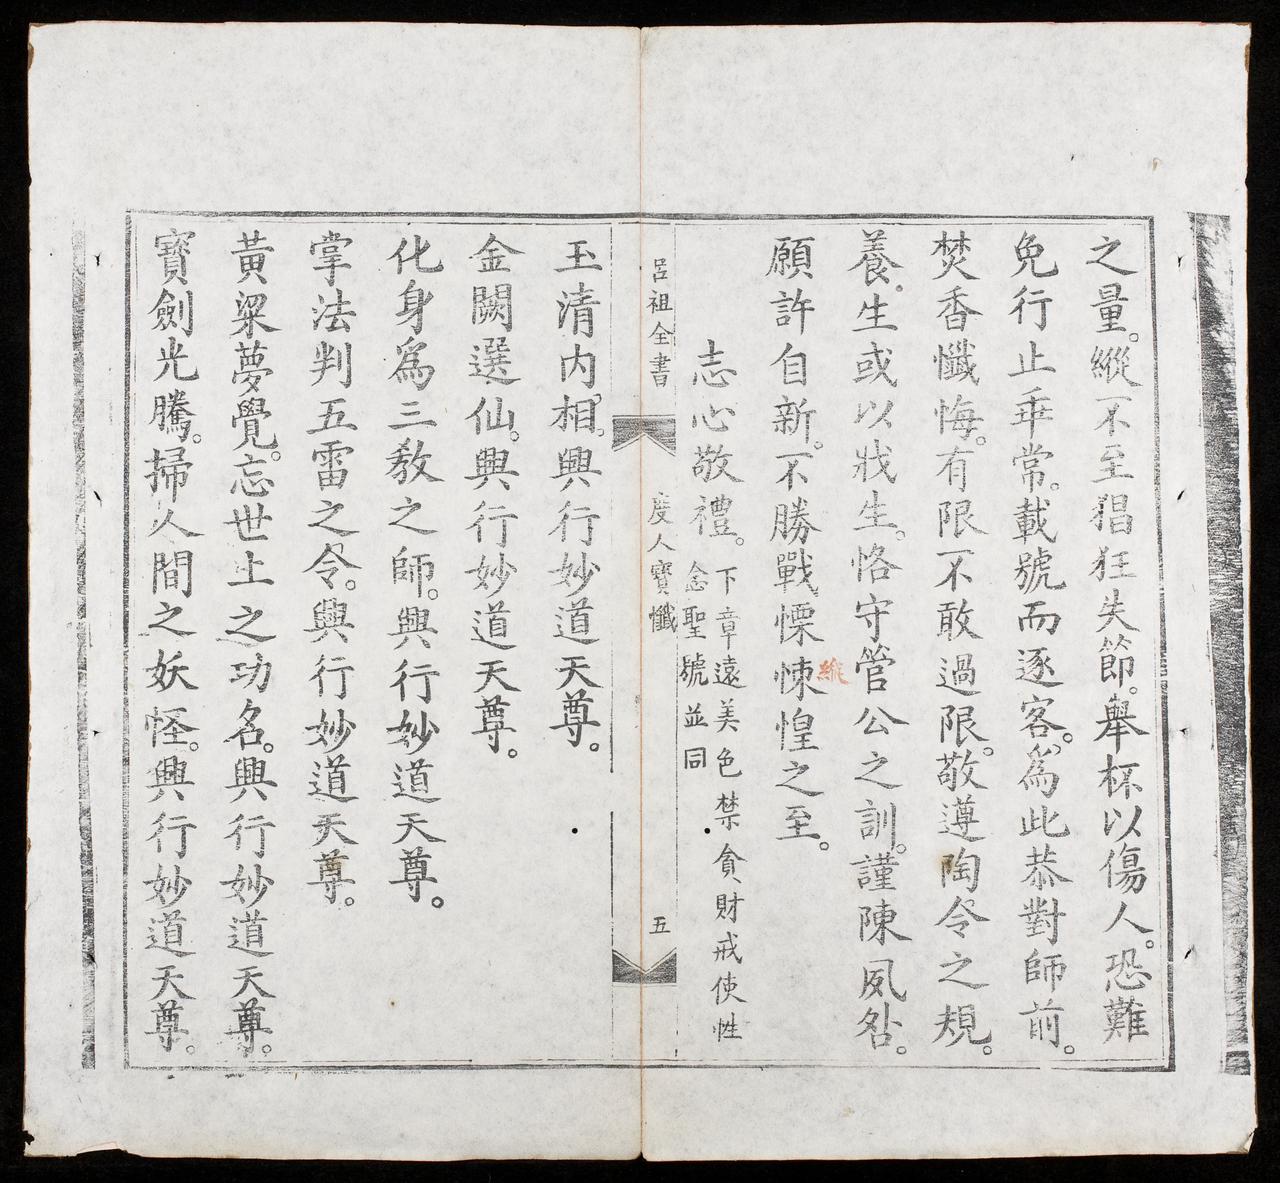 之量。縱不至猖狂失節。舉杯以傷人。恐難
免行止乖常。載號而逐客。爲此恭對師前。
焚香懺悔。有限不敢過限。敬遵陶令之規。
養生或以戕生。恪守管公之訓。謹陳夙咎。
縱
願許自新。不勝戰慄悚惶之至。
志心敬禮。
下章遠美色禁貪財戒使性
念聖號並同
呂祖全書
度人寶懺
五
玉清内相。興行妙道天尊。
金闕選仙。興行妙道天尊。
化身爲三教之師。興行妙道天尊。
掌法判五雷之令。興行妙道天尊。
黃粱夢覺。忘世上之功名。興行妙道天尊。
寶劍光騰。掃人間之妖怪。興行妙道天尊。